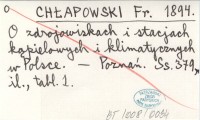 CHŁAPOWSKI Fr. 1894.
O zdrojowiskach i stacjach
kąpielowych i klimatycznych
w Polsce. — Poznań. Ss. 379,
il., tabl. 1.
BT/008/0034